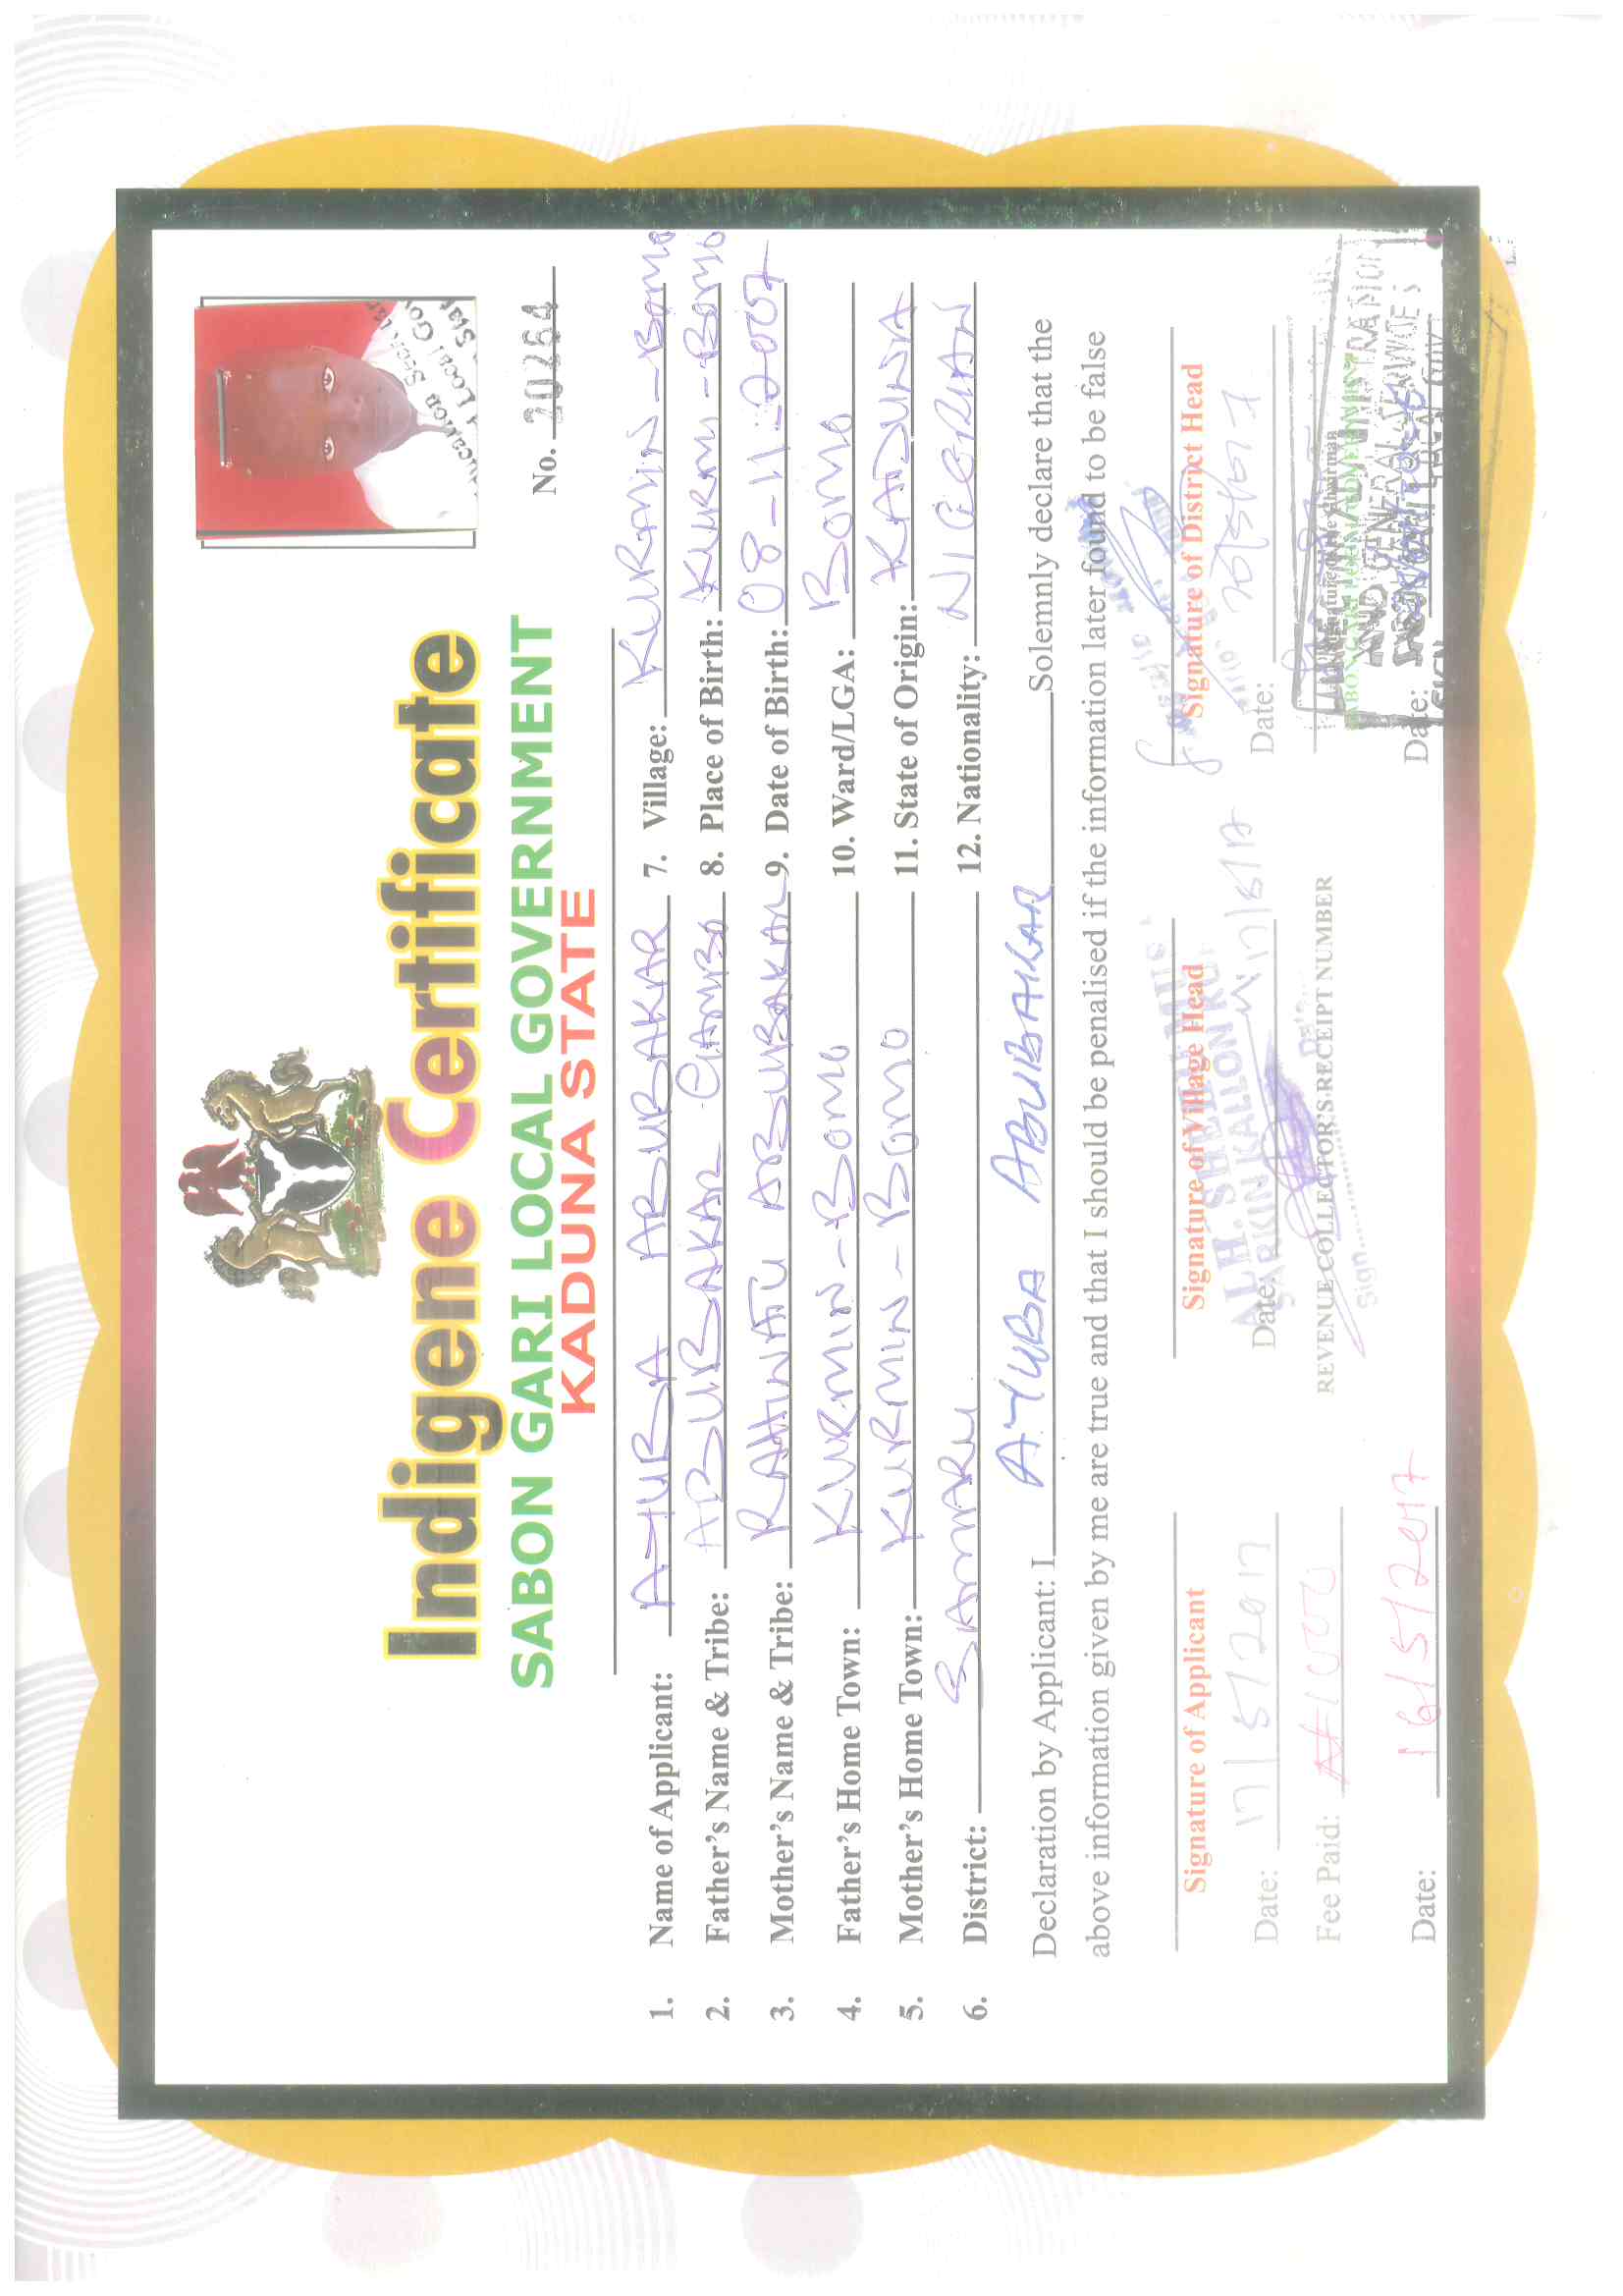 Indigene Certificate
SABON GARI LOCAL GOVERNMENT
KADUNA STATE
No. 20264
1. Name of Applicant: AYUBA ABUBAKAR
2. Father's Name & Tribe: ABUBAKAR GAMBO
3. Mother's Name & Tribe: RAHINATU ABUBAKAR
4. Father's Home Town: KURMIN-BOMO
5. Mother's Home Town: KURMIN-BOMO
6. District: BASAWA
7. Village: KURMIN-BOMO
8. Place of Birth: KURMI-BOMO
9. Date of Birth: 08-11-2007
10. Ward/LGA: BOMO
11. State of Origin: KADUNA
12. Nationality: NIGERIAN
Declaration by Applicant: I AYUBA ABUBAKAR Solemnly declare that the
above information given by me are true and that I should be penalised if the information later found to be false
Signature of Applicant
Date: 17/5/2017
Fee Paid: ₦1000
Date: 16/5/2017
Signature of Village Head
ALH. SHEHU
SARKIN KALLON
Date: 17/5/17
REVENUE COLLECTOR'S RECEIPT NUMBER
Sign
Signature of District Head
Date: 20/5/2017
AND GENERAL
Date:
SIGN